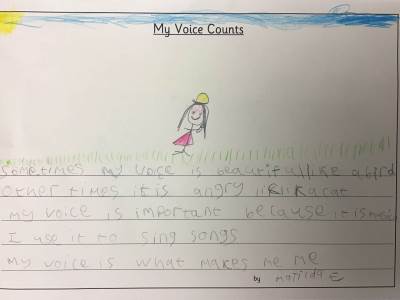 My Voice Counts
Sometimes my voice is beautiful like a bird
Other times it is angry like a rat
my voice is important because it is me
I use it to sing songs
my voice is what makes me me
by Matilda E